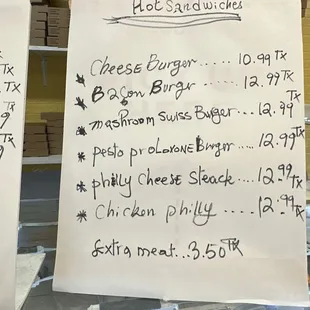 Hot Sandwiches
* Cheese Burger ..... 10.99 TX
* Bacon Burgr ..... 12.99 TX
* mashroom Swiss Burger... 12.99 TX
* pesto proloxone Burger... 12.99 TX
* philly Cheese Steack.... 12.99 TX
* Chicken philly ..... 12.99 TX
Extra meat... 3.50 TX